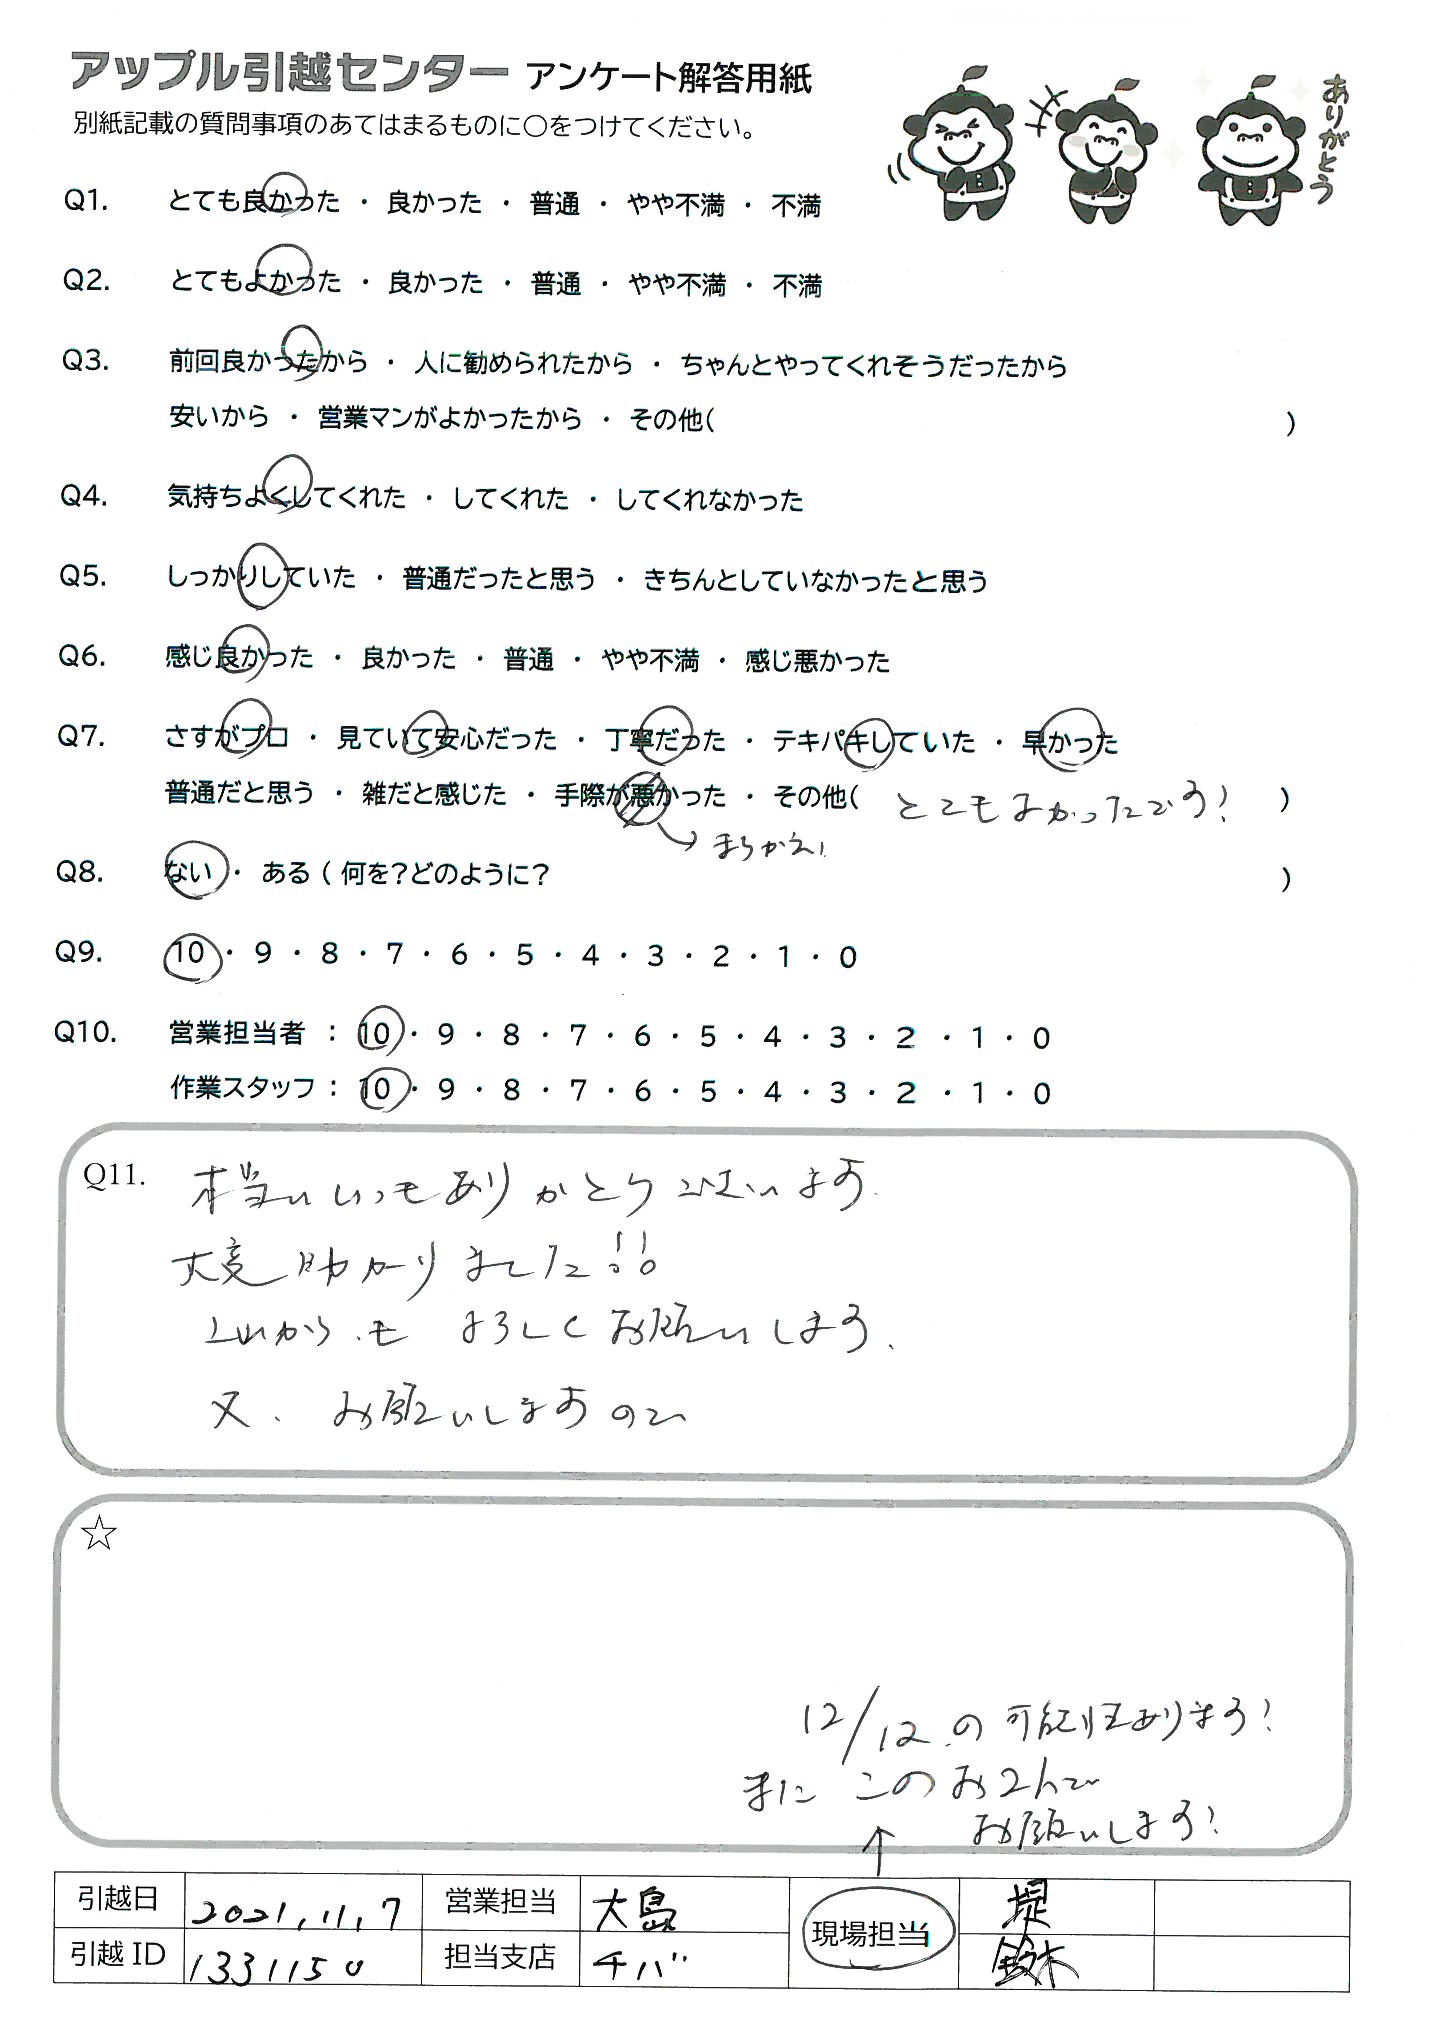 アップル引越センター アンケート解答用紙
別紙記載の質問事項のあてはまるものに○をつけてください。
ありがとう
Q1. とても良かった ・ 良かった ・ 普通 ・ やや不満 ・ 不満
Q2. とてもよかった ・ 良かった ・ 普通 ・ やや不満 ・ 不満
Q3. 前回良かったから ・ 人に勧められたから ・ ちゃんとやってくれそうだったから
安いから ・ 営業マンがよかったから ・ その他( )
Q4. 気持ちよくしてくれた ・ してくれた ・ してくれなかった
Q5. しっかりしていた ・ 普通だったと思う ・ きちんとしていなかったと思う
Q6. 感じ良かった ・ 良かった ・ 普通 ・ やや不満 ・ 感じ悪かった
Q7. さすがプロ ・ 見ていて安心だった ・ 丁寧だった ・ テキパキしていた ・ 早かった
普通だと思う ・ 雑だと感じた ・ 手際が悪かった ・ その他( とてもよかったです! )
→ まちがえ!
Q8. ない ・ ある ( 何を?どのように? )
Q9. 10 ・ 9 ・ 8 ・ 7 ・ 6 ・ 5 ・ 4 ・ 3 ・ 2 ・ 1 ・ 0
Q10. 営業担当者 : 10 ・ 9 ・ 8 ・ 7 ・ 6 ・ 5 ・ 4 ・ 3 ・ 2 ・ 1 ・ 0
作業スタッフ : 10 ・ 9 ・ 8 ・ 7 ・ 6 ・ 5 ・ 4 ・ 3 ・ 2 ・ 1 ・ 0
Q11. 本当にいつもありがとうございます.
大変助かりました!!
これからも よろしくお願いします.
又、お願いしますので
☆
12/12の可能性あります!
またこのお2人で
お願いします!
↑
引越日 2021,11,7 営業担当 大島 現場担当 堤
引越ID 1331150 担当支店 チバ 鈴木